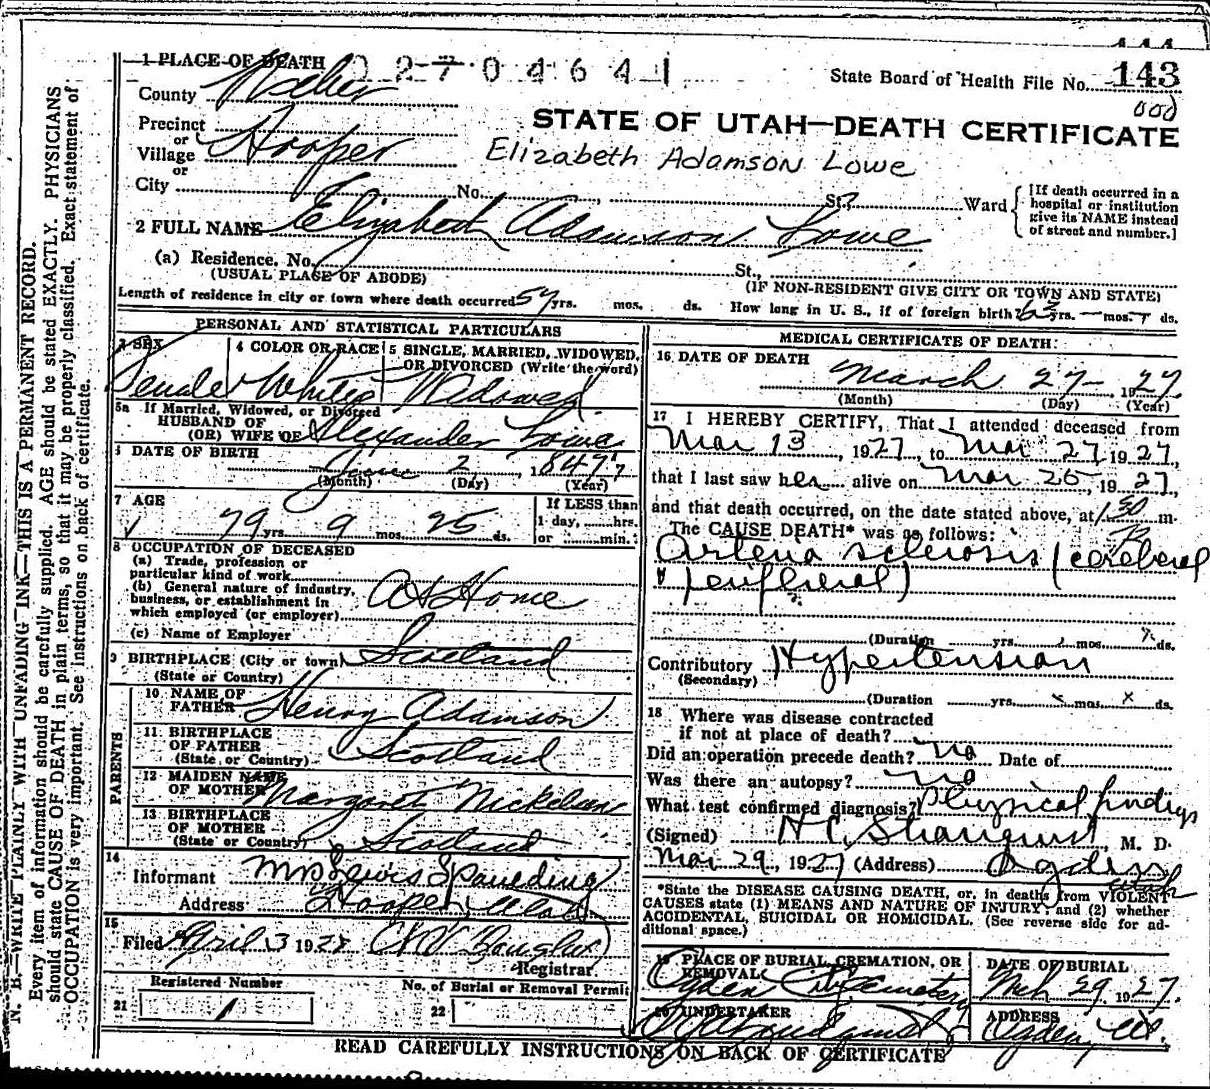 1 PLACE OF DEATH 0 2 7 0 4 6 4 1
State Board of Health File No. 143
County Weber
000
STATE OF UTAH—DEATH CERTIFICATE
Precinct or Village Hooper
Elizabeth Adamson Lowe
City No. St., Ward
[If death occurred in a hospital or institution give its NAME instead of street and number.]
2 FULL NAME Elizabeth Adamson Lowe
(a) Residence. No. St.,
(USUAL PLACE OF ABODE) (IF NON-RESIDENT GIVE CITY OR TOWN AND STATE)
Length of residence in city or town where death occurred 57 yrs. mos. ds. How long in U. S., if of foreign birth? 63 yrs. — mos. ds.
PERSONAL AND STATISTICAL PARTICULARS
3 SEX Female
4 COLOR OR RACE White
5 SINGLE, MARRIED, WIDOWED, OR DIVORCED (Write the word) Widowed
5a If Married, Widowed, or Divorced
HUSBAND OF
(OR) WIFE OF Alexander Lowe
DATE OF BIRTH June 2, 1847
(Month) (Day) (Year)
7 AGE 79 yrs. 9 mos. 25 ds.
If LESS than 1 day, hrs. or min.
8 OCCUPATION OF DECEASED
(a) Trade, profession or particular kind of work
(b) General nature of industry, business, or establishment in which employed (or employer)
At Home
(c) Name of Employer
9 BIRTHPLACE (City or town) Scotland
(State or Country)
PARENTS
10 NAME OF FATHER Henry Adamson
11 BIRTHPLACE OF FATHER Scotland
(State or Country)
12 MAIDEN NAME OF MOTHER Margaret
13 BIRTHPLACE OF MOTHER Scotland
(State or Country)
14 Informant Mrs Lewis Spaulding
Address Hooper, Utah
15 Filed April 3 192
Registrar.
Registered Number
21 1
No. of Burial or Removal Permit
22
MEDICAL CERTIFICATE OF DEATH:
16 DATE OF DEATH
March 27 1927
(Month) (Day) (Year)
17 I HEREBY CERTIFY, That I attended deceased from
Mar 13, 1927, to Mar 27, 1927,
that I last saw her alive on Mar 26, 1927,
and that death occurred, on the date stated above, at 1.30 m.
The CAUSE DEATH* was as follows: P
Arterio sclerosis (cerebral
peripheral)
(Duration yrs. mos. ds.
Contributory Hypertension
(Secondary)
(Duration yrs. x mos. x ds.
18 Where was disease contracted
if not at place of death?
Did an operation precede death? no Date of
Was there an autopsy? no
What test confirmed diagnosis? Physical findings
(Signed) M. D.
Mar 29, 1927 (Address) Ogden Utah
*State the DISEASE CAUSING DEATH, or, in deaths from VIOLENT
CAUSES state (1) MEANS AND NATURE OF INJURY; and (2) whether
ACCIDENTAL, SUICIDAL OR HOMICIDAL. (See reverse side for additional space.)
19 PLACE OF BURIAL, CREMATION, OR REMOVAL
Ogden City Cemetery
DATE OF BURIAL
Mch 29 1927.
20 UNDERTAKER
ADDRESS
Ogden, Ut.
READ CAREFULLY INSTRUCTIONS ON BACK OF CERTIFICATE
N. B.—WRITE PLAINLY WITH UNFADING INK—THIS IS A PERMANENT RECORD.
Every item of information should be carefully supplied. AGE should be stated EXACTLY. PHYSICIANS
should state CAUSE OF DEATH in plain terms, so that it may be properly classified. Exact statement of
OCCUPATION is very important. See instructions on back of certificate.